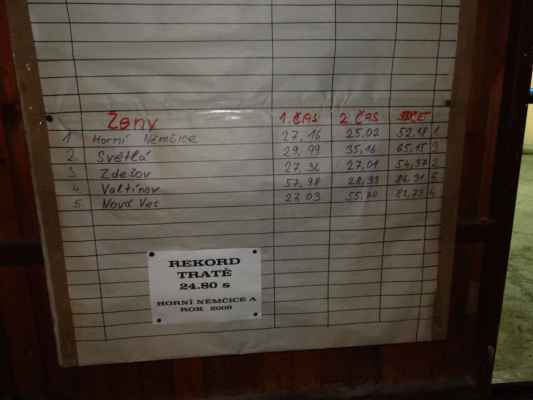 Ženy 1. ČAS 2. ČAS
1. Horní Němčice 27,16 25,02 52,18 1
2. Světlá 29,99 35,16 65,15 3
3. Zdešov 27,36 27,01 54,37 2
4. Valtínov 57,98 28,93 86,91 5
5. Nová Ves 27,03 82,73 4
REKORD
TRATĚ
24.80 s
HORNÍ NĚMČICE A
ROK 2009